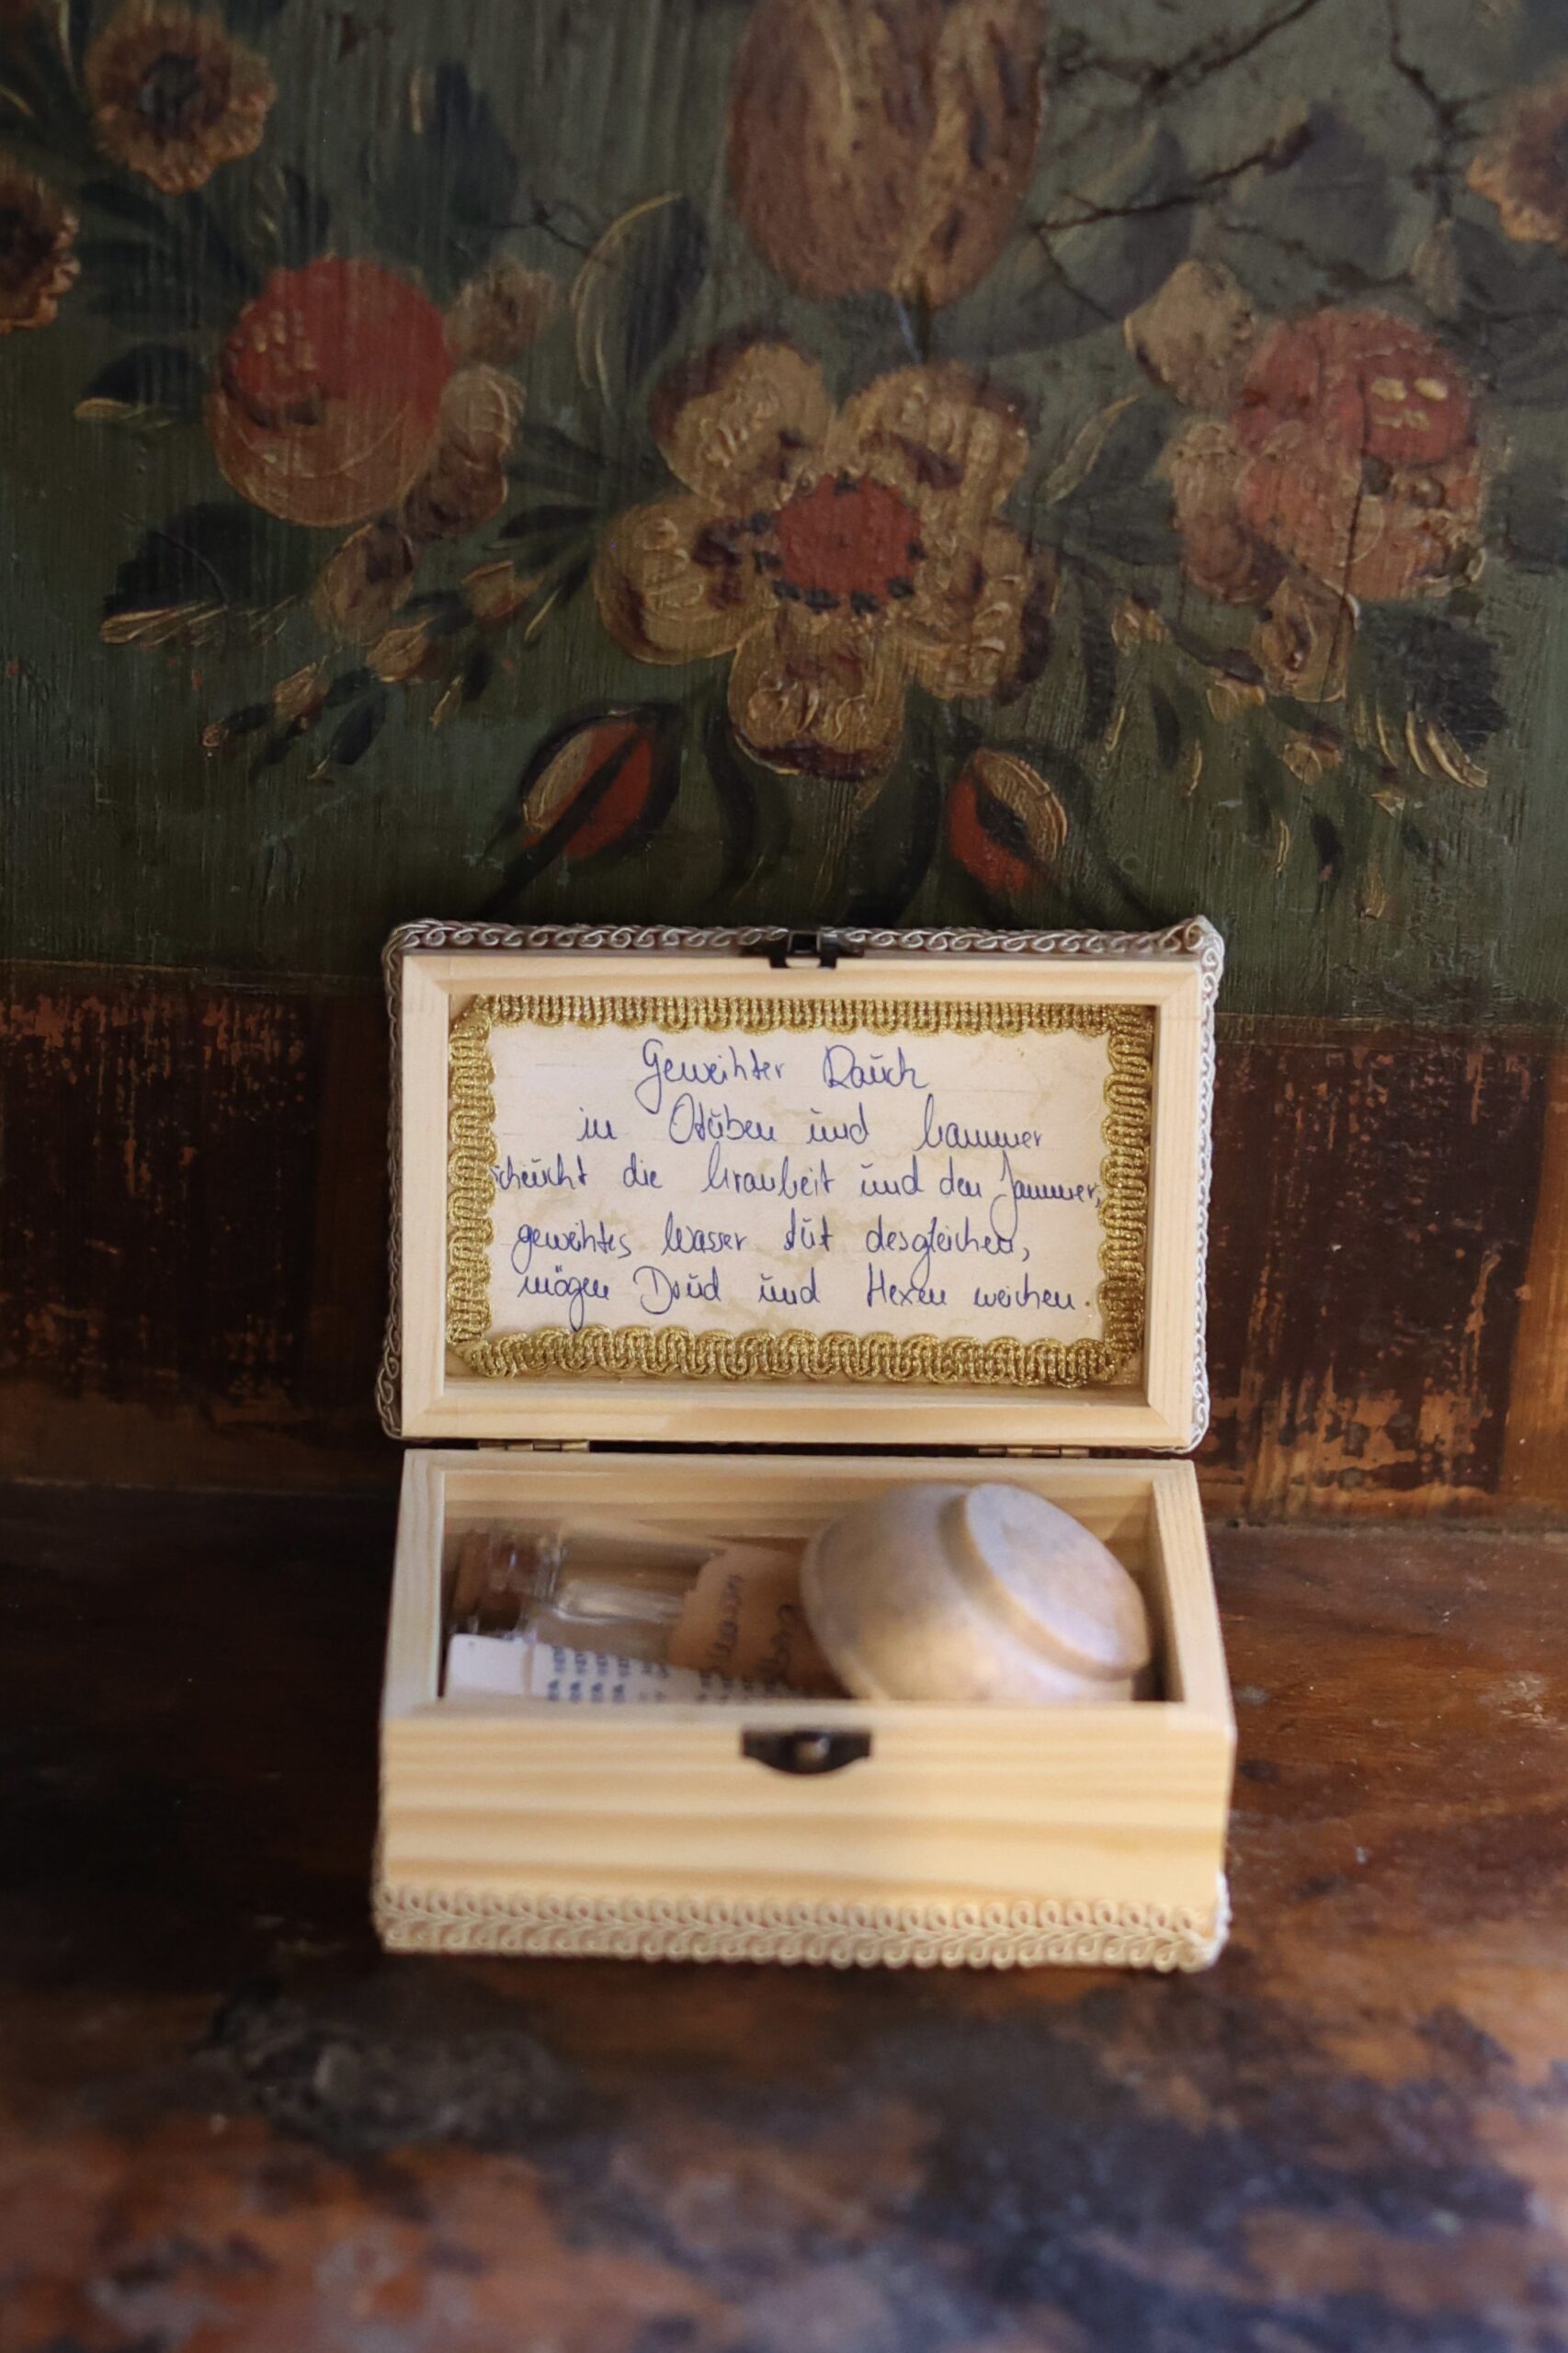 Geweihter Rauch
in Stuben und Kammer
scheucht die Krankheit und den Jammer,
geweihtes Wasser tut desgleichen,
mögen Drud und Hexen weichen.